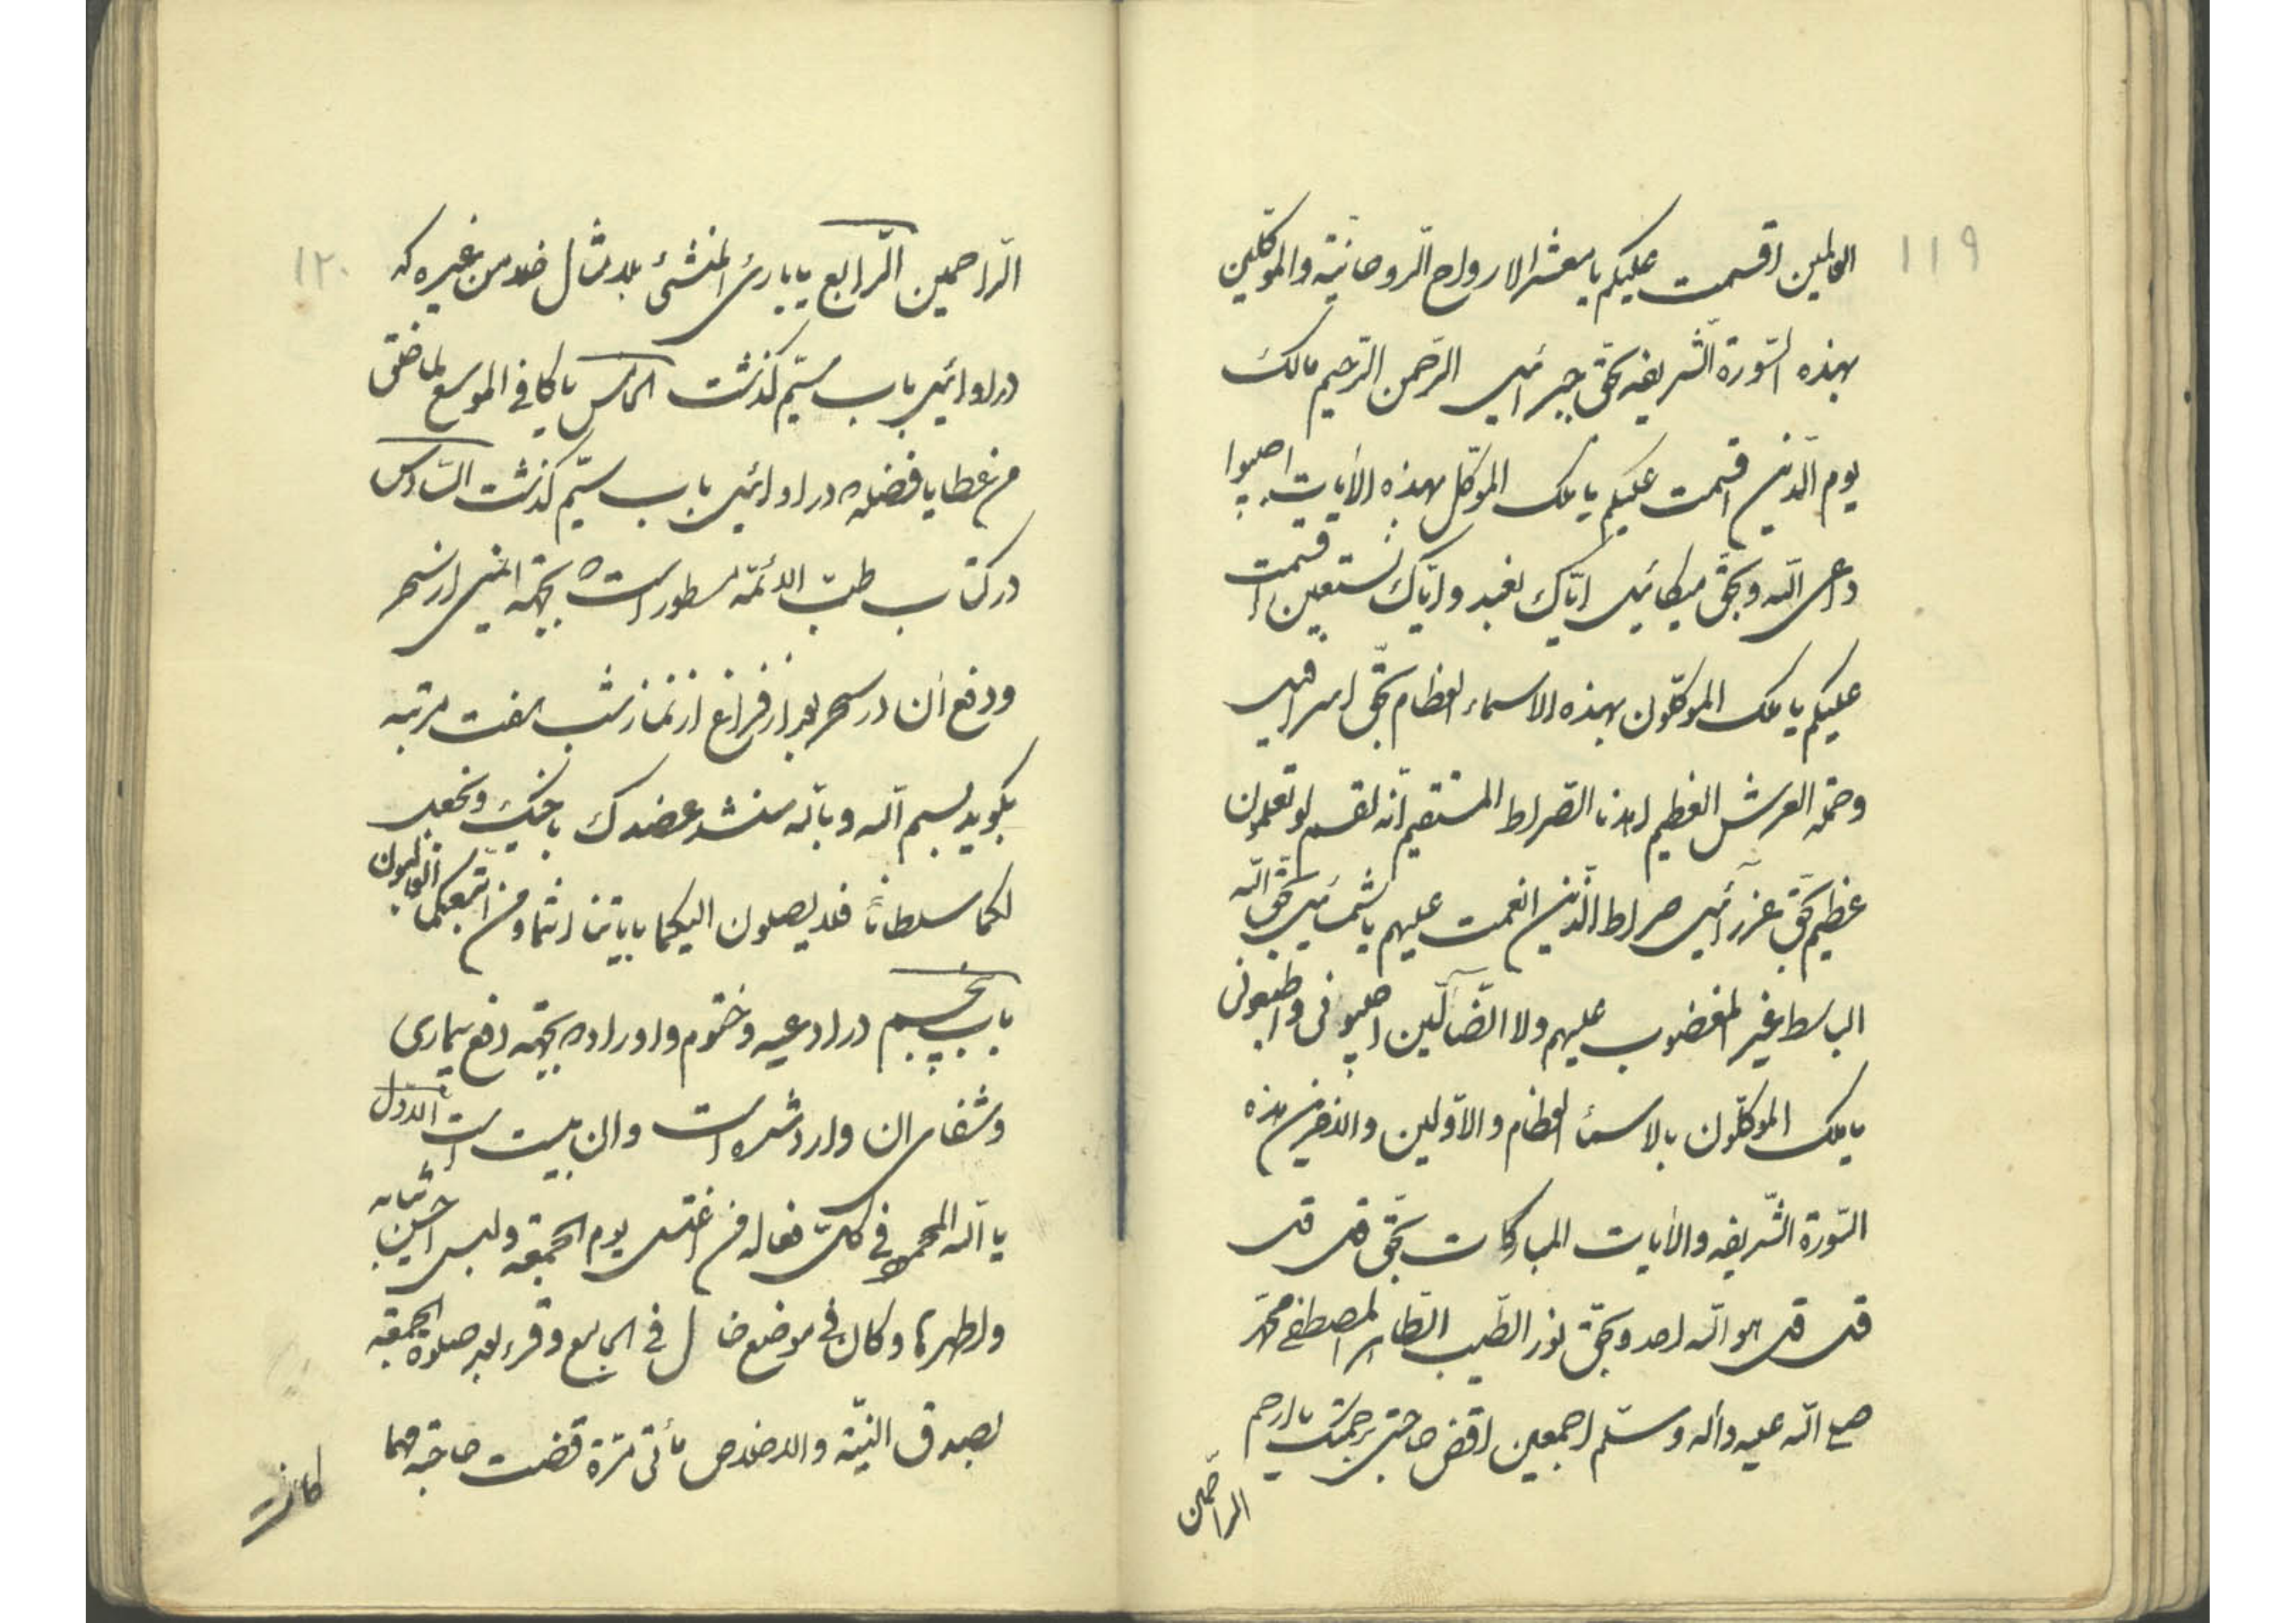 ۱۱۹
العالمین اقسمت علیکم یا معشر الارواح الروحانیّة والموکّلین
بهذه السّورة الشّریفه بحقّ جبرائیل الرّحمن الرّحیم مالک
یوم الدّین اقسمت علیکم یا ملک الموکّل بهذه الآیات اجیبوا
داعی اللّه وبحقّ میکائیل ایّاک نعبد وایّاک نستعین اقسمت
علیکم یا ملک الموکّلون بهذه الاسماء العظام بحقّ اسرافیل
وحمله العرش العظیم اهدنا الصّراط المستقیم انّه لقسم لو تعلمون
عظیم بحقّ عزرآئیل صراط الّذین انعمت علیهم یا شمائیل بحقّ اللّه
الباسط غیر المغضوب علیهم ولا الضّآلّین اجیبونی واطیعونی
یا ملک الموکّلون بالاسماء العظام والاوّلین والاخرین بهذه
السّورة الشّریفه والآیات المبارکات بحقّ قل قل
قل قل هو اللّه احد وبحقّ نور الطّیب الطّاهر المصطفی محمّد
صلی اللّه علیه وآله وسلّم اجمعین اقض حاجتی برحمتک یا ارحم
الراحمین
۱۲۰
الرّاحمین الرّابع یا بارئ المنشئ بلا مثال خلا من غیره که
در اوائل باب سیّم گذشت الخامس یا کافی الموسع لما خلق
من عطایا فضله در اوائل باب سیّم گذشت السّادس
در کتاب طبّ الائمّه مسطور است بجهة ایمنی از سحر
ودفع ان در سحر بعد از فراغ از نماز شب هفت مرتبه
بگوید بسم اللّه وباللّه سنشد عضدک باخیک ونجعل
لکما سلطاناً فلا یصلون الیکما بایاتنا انتما ومن اتّبعکما الغالبون
باب پنجم در ادعیه وختوم واوراده بجهة دفع بیماری
وشفای ان وارد شده است وان بیست است الاوّل
یا اللّه المحمود فی کلّ فعاله من اغتسل یوم الجمعة ولبس احسن ثیابه
واطهرها وکان فی موضع خال فی الجامع وقرء بعد صلوة الجمعة
بصدق النیّة والاخلاص مأتی مرّة قضت حاجته مهما
کانت